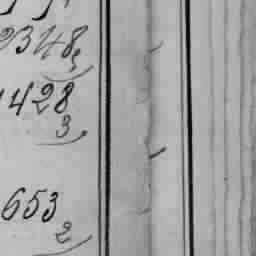 2348
3
1428
3
653
2